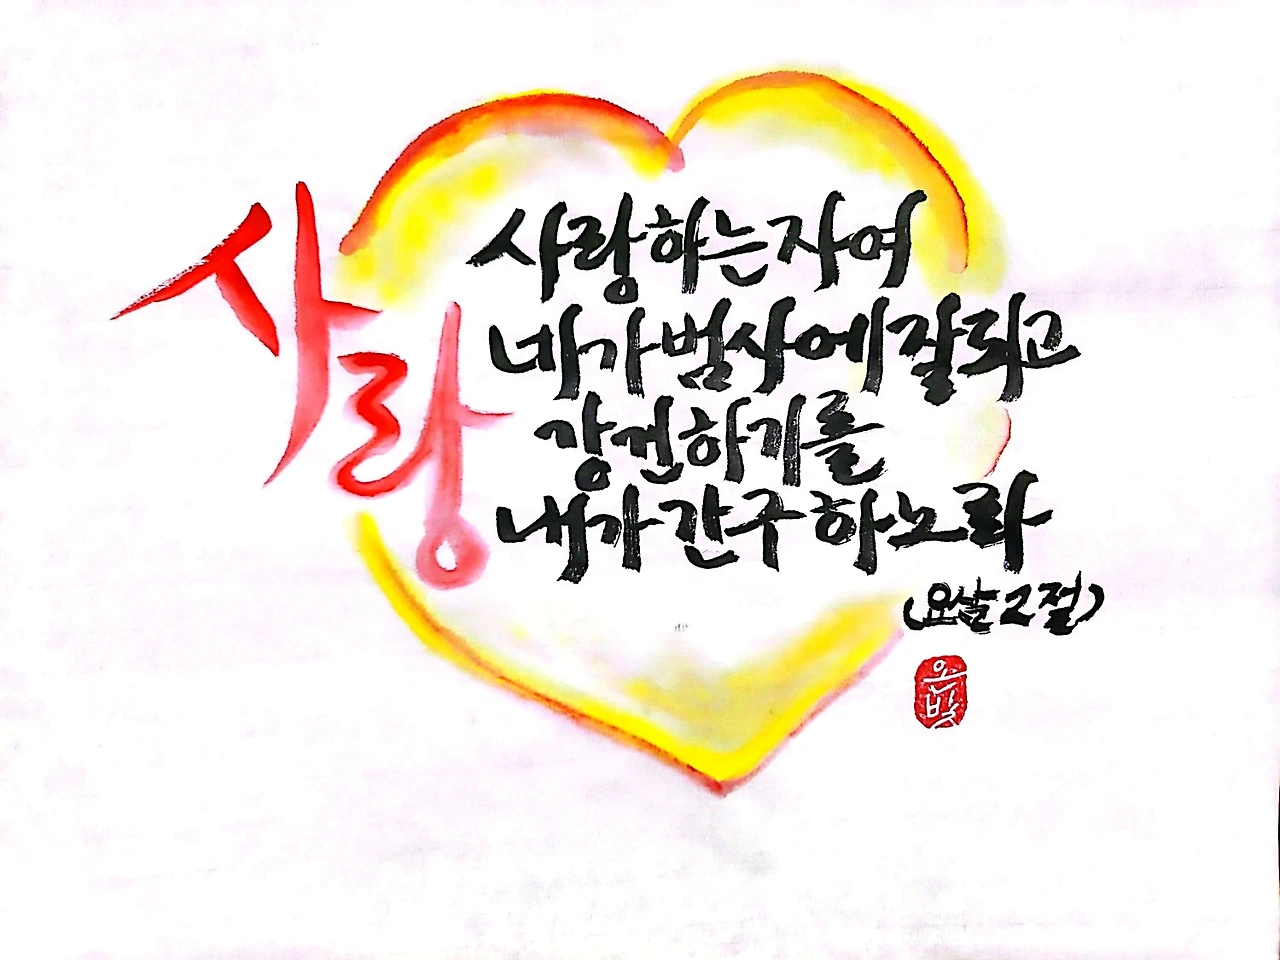 사랑
사랑하는자여
네가범사에잘되고
강건하기를
내가간구하노라
(요삼2절)